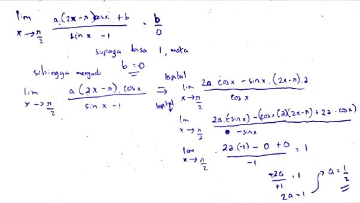 lim x→π/2 a.(2x-π)cosx + b / sin x - 1 = b/0
supaya bisa 1, maka
b = 0
sehingga menjadi
lim x→π/2 a(2x-π).cosx / sin x - 1 ⇒ lim x→π/2 2a.cosx - sinx.(2x-π).a / cosx
lim x→π/2 2a.(-sinx) - (cosx(a)(2x-π) + 2a.cosx) / -sinx
lim x→π/2 2a(-1) - 0 + 0 / -1 = 1
+2a / +1 = 1
2a = 1
a = 1/2